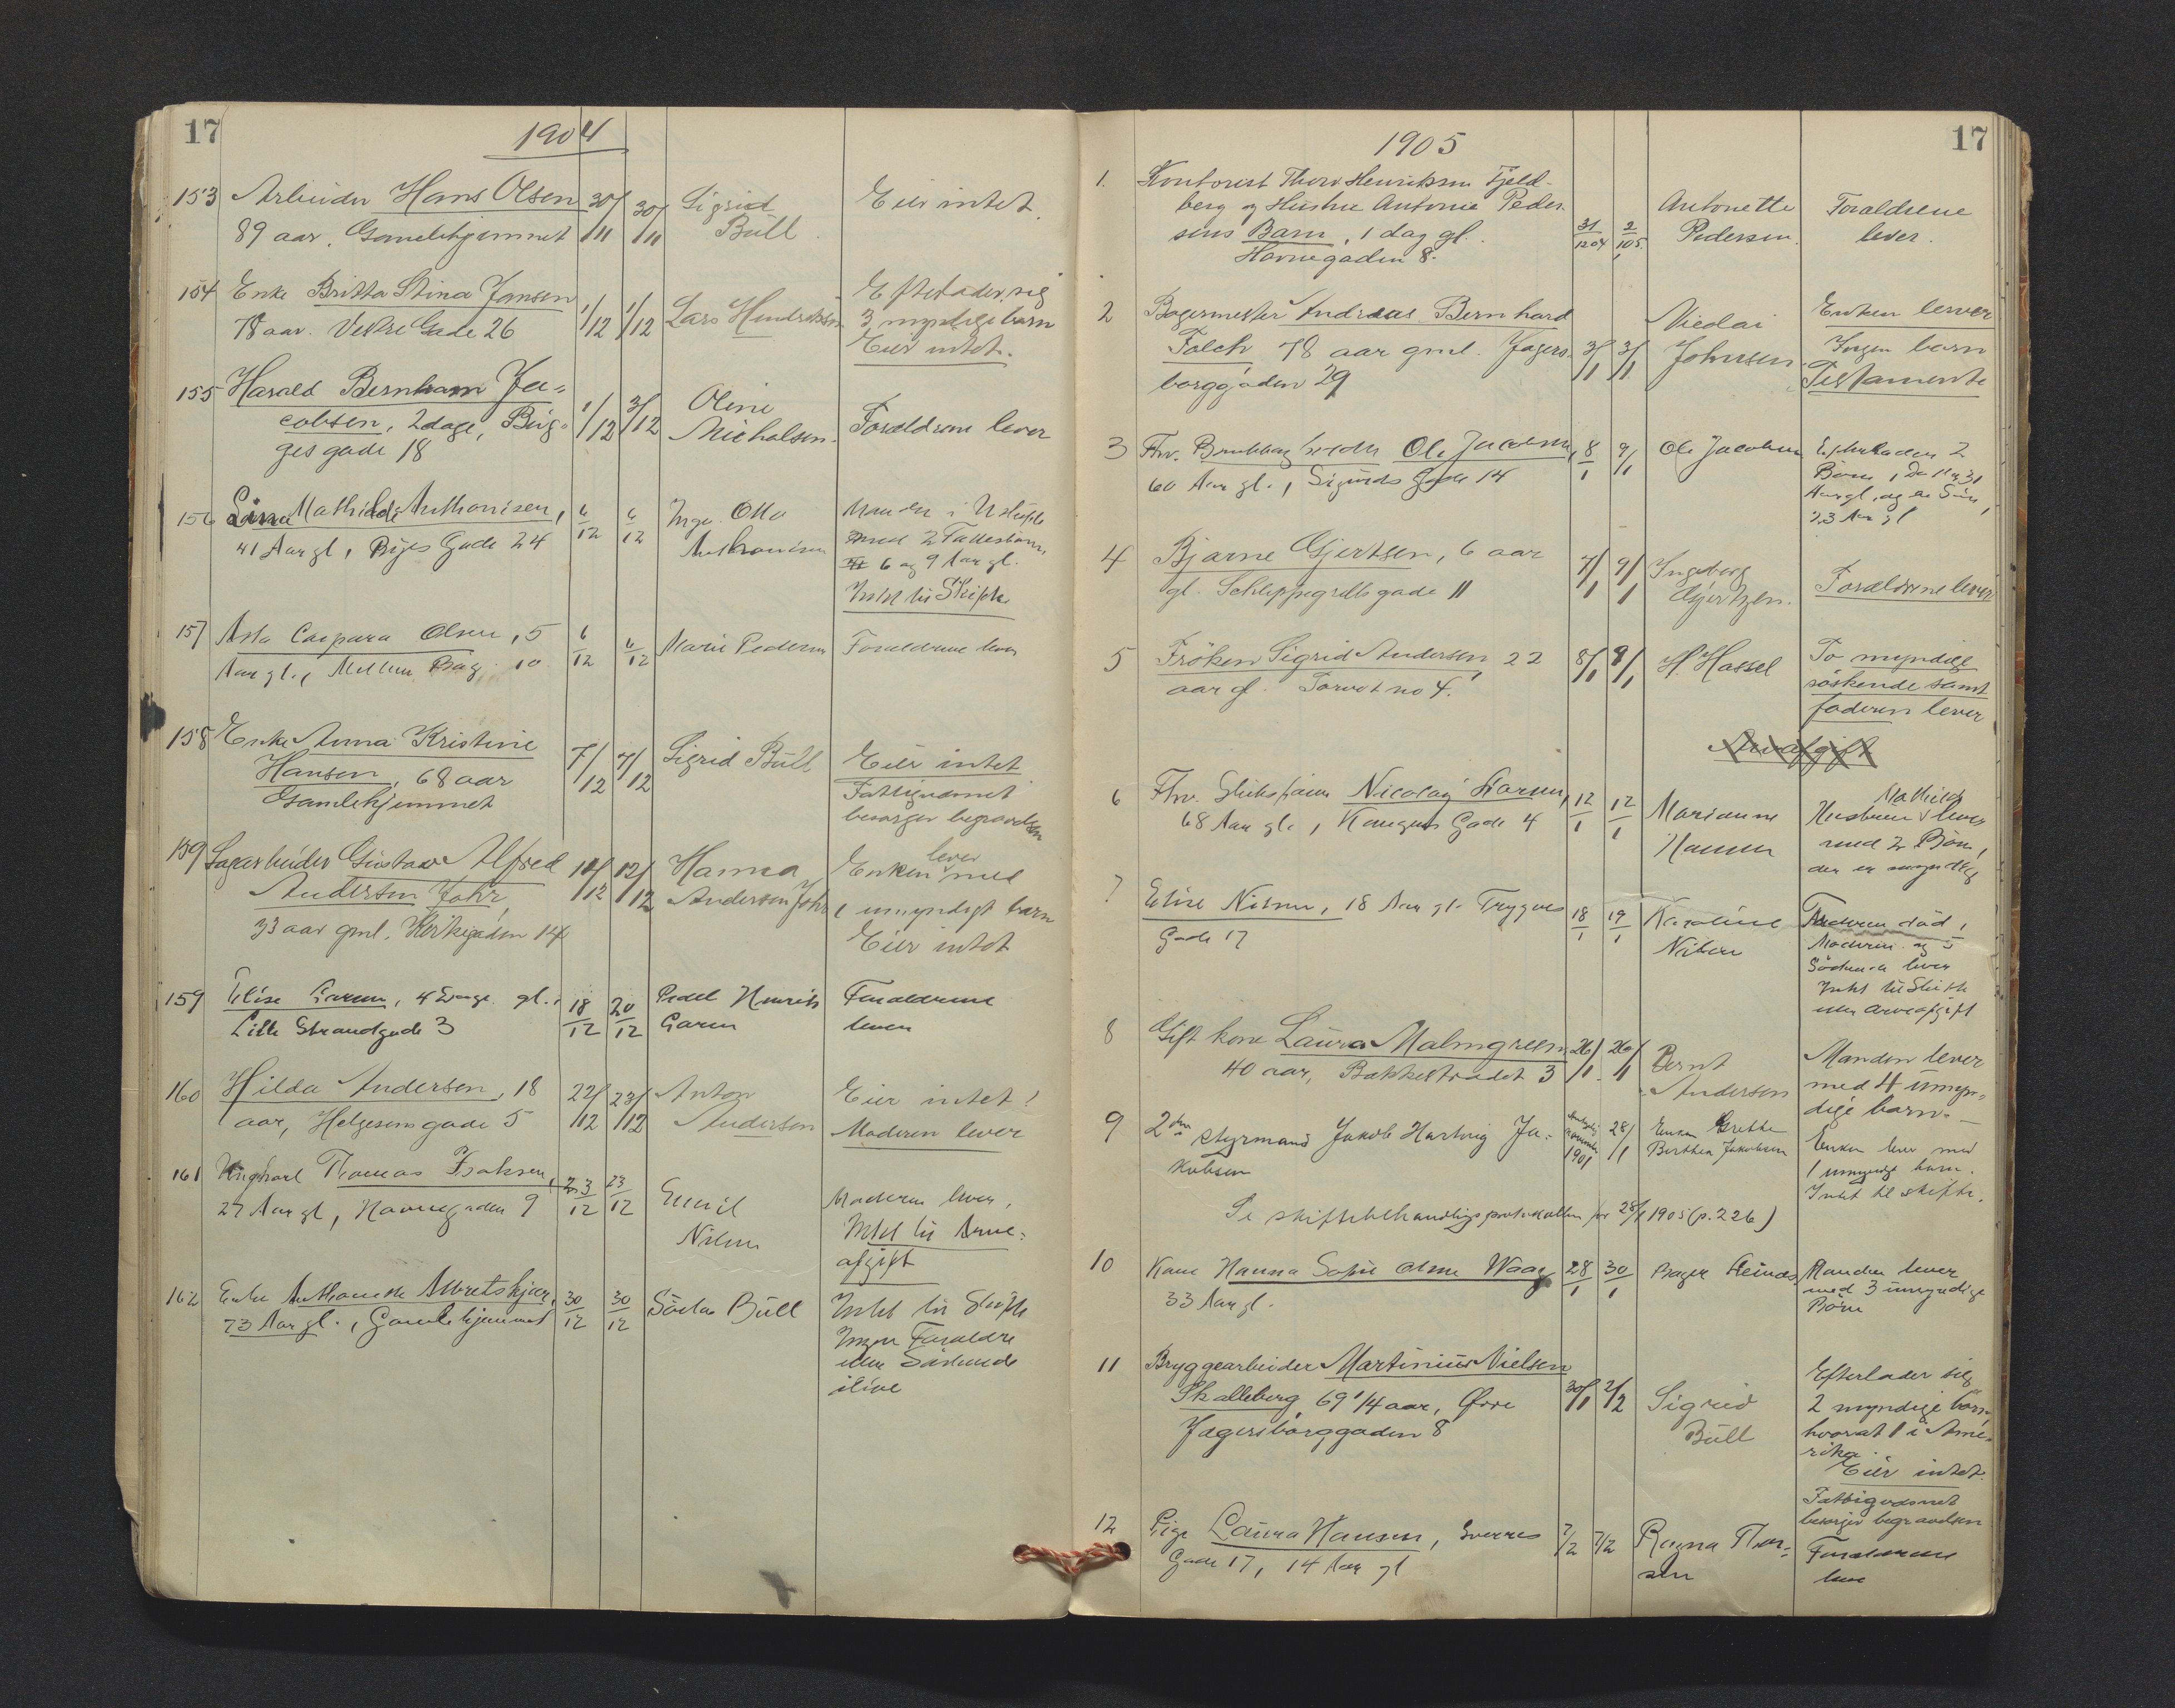 17
1904
153 Arbeider Hans Olsen 30/11 30/11 Sigrid Eier intet.
89 aar. Gamlehjemmet Büll.
154 Enke Britta Stina Jansen 1/12 1/12 Lars Hendriksen Efterlader sig
78 aar. Vestre Gade 26 3 myndige barn
Eier intet.
155 Harald Bernham Ja-
cobsen, 2 dage, Bir- 1/12 3/12 Oline Forældrene lever
ges gade 18 Micholsen.
156 Mathilde Anthonisen, 6/12 6/12 Inga Otto Manden i
41 Aar gl, Gade 24 Anthonisen med 2 Fællesbørn
6 og 9 Aar gl.
Intet til Skifte
157 Asta Caspara Olsen, 5 6/12 6/12 Marie Pedersen Forældrene lever
Aar gl., Mellem 10
158 Enke Anna Kristine 7/12 7/12 Sigrid Büll Eier intet
Hansen, 68 aar Fattigvæsenet
Gamlehjemmet besørger begravelsen
159 Sagarbeider Gustav Alfred 12/12 Hanna Enken lever med
Andersen Johr, Andersen Johr 1 umyndigt barn
33 aar gml. Kirkegaden 14 Eier intet
159 Elise Garen, 4 Dage gl. 18/12 20/12 Pedel Henrik Forældrene
Lille Strandgade 3 Garen lever
160 Hilda Andersen, 18 22/12 23/12 Anton Eier intet!
aar, Helgesens gade 5 Andersen Moderen lever
161 Ungkarl Thomas Isaksen, 23/12 23/12 Emil Moderen lever,
27 Aar gl, Havnegaden 9 Nilsen Intet til Arve-
afgift
162 Enke Albretskjær, 30/12 30/12 Søster Büll Intet til Skifte
73 Aar gl., Gamlehjemmet Ingen Forældre
eller Søskende
ilive
17
1905
1. Kontorist Thorv Henriksen Fjeld-
berg og Hustru Antonie Peder- Antonette Forældrene
sens Barn, 1 dag gl. 31/12 04 2/1 05. Pedersen. lever.
Havnegaden 8.
2 Bagermester Andreas Bernhard Nicolai Enken lever
Falch 78 aar gml. Jegers- 3/1 3/1 Johnsen. Ingen barn
borggaden 29 Testamente
3 Fhv. Ole Jacobsen, 8/1 9/1 Ole Jacobsen Efterlader 2
60 Aar gl., Sigurds Gade 14 Børn, Datter 31
Aar gl, og en Søn,
23 Aar gl
4 Bjarne Gjertsen, 6 aar 7/1 9/1 Ingeborg Forældrene lever
gl. Schleppegrells gade 11 Gjertzen.
5 Fröken Sigrid Andersen, 22 8/1 9/1 H. Hassel To myndige
aar gl. Torvet no 4. söskende samt
faderen lever
Arveafgift
6 Fhv. Nicolay Larsen, 12/1 12/1 Marianne Hustruen Mathilde lever
68 Aar gl., Kongens Gade 4 Hansen med 2 Børn,
der er myndige
7 Elise Nilsen, 18 Aar gl. Trygves 18/1 19/1 Karoline Faderen död,
Gade 17 Nilsen Moderen og 5
Söskende lever
Intet til Skifte
eller Arveafgift
8 Gift kone Laura Malmgreen 26/1 26/1 Bernt Manden lever
40 aar, Bakkestrædet 3 Andersen med 4 umyn-
dige barn.
9 2den styrmand Jakob Hartvig Ja- november 1901 28/1 Enken Grethe Enken lever med
kobsen Berthea Jakobsen 1 umyndigt barn.
Intet til skifte.
Se skiftebehandlingsprotokollen for 28/1 1905 (p. 226)
10 Kone Hanna Sofie Waag 28/1 30/1 Bager Manden lever
33 Aar gl. med 3 umyndige
Børn
11 Bryggearbeider Martinius Nielsen Efterlader sig
Skalleberg 69 1/4 aar, Øvre 30/1 2/2 Sigrid 2 myndige børn
Jegersborggaden 8 Büll hvorat 1 i Ame-
rika.
Eier intet.
Fattigvæsnet
besørger begravelsen
12 Pige Laura Hansen, Sverres 7/2 7/2 Ragna Thor- Forældrene
Gade 17, 14 Aar gl sen lever